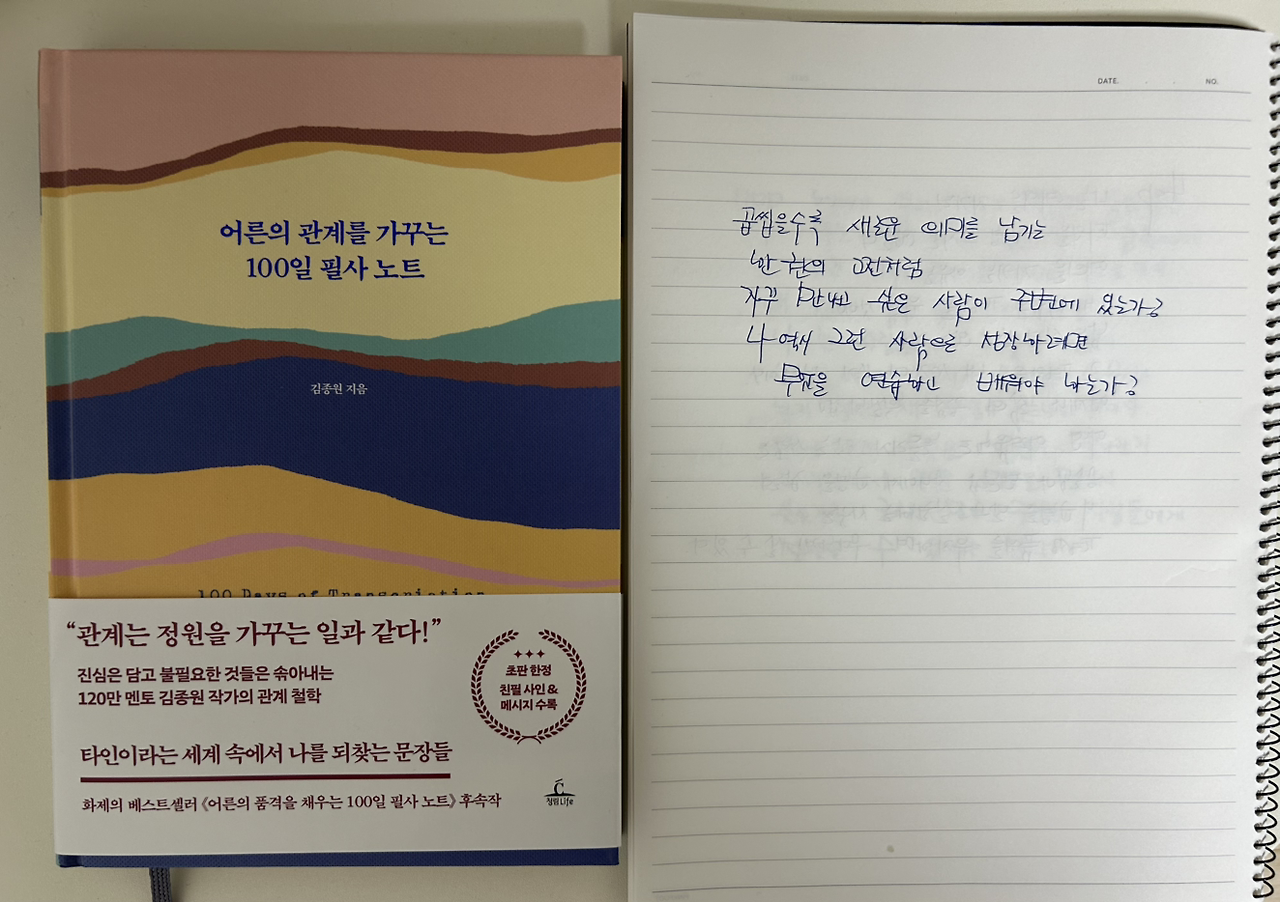 어른의 관계를 가꾸는
100일 필사 노트
김종원 지음
100 Days of Transcription
“관계는 정원을 가꾸는 일과 같다!”
진심은 담고 불필요한 것들은 솎아내는
120만 멘토 김종원 작가의 관계 철학
초판 한정
친필 사인 &
메시지 수록
타인이라는 세계 속에서 나를 되찾는 문장들
화제의 베스트셀러 《어른의 품격을 채우는 100일 필사 노트》 후속작
청림Life
DATE. . . NO.
곱씹을수록 새로운 의미를 남기는
한 권의 고전처럼
자꾸 만나고 싶은 사람이 주변에 있는가?
나 역시 그런 사람으로 성장하려면
무엇을 연습하고 배워야 하는가?